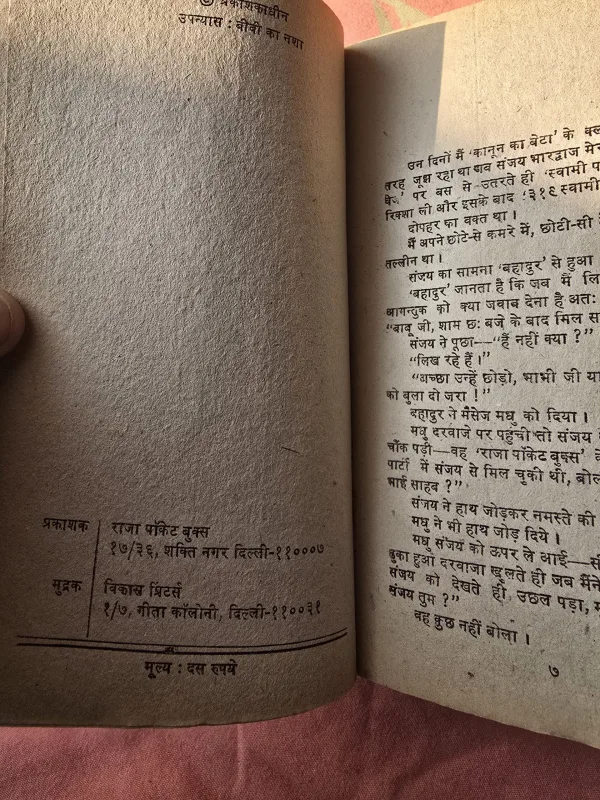 © प्रकाशकाधीन
उपन्यास : बीवी का नशा
प्रकाशक राजा पॉकेट बुक्स
१७/३६, शक्ति नगर दिल्ली-११०००७
मुद्रक विकास प्रिंटर्स
१/७, गीता कॉलोनी, दिल्ली-११००३१
मूल्य : दस रुपये
उन दिनों मैं ‘कानून का बेटा’ के
तरह जूझ रहा था जब संजय भारद्वाज
पर बस से उतरते ही ‘स्वामी
रिक्शा ली और इसके बाद ‘३१६ स्वामी
दोपहर का वक्त था ।
मैं अपने छोटे-से कमरे में, छोटी-सी
तल्लीन था ।
संजय का सामना ‘बहादुर’ से हुआ
‘बहादुर’ जानता है कि जब मैं
आगन्तुक को क्या जवाब देना है अतः
“बाबू जी, शाम छः बजे के बाद मिल
संजय ने पूछा—“हैं नहीं क्या ?”
“लिख रहे हैं ।”
“अच्छा उन्हें छोड़ो, भाभी जी या
को बुला दो जरा !”
बहादुर ने मैसेज मधु को दिया ।
मधु दरवाजे पर पहुंची तो संजय
चौंक पड़ी—वह ‘राजा पॉकेट बुक्स’
पार्टी में संजय से मिल चुकी थी,
भाई साहब ?”
संजय ने हाथ जोड़कर नमस्ते की
मधु ने भी हाथ जोड़ दिये ।
मधु संजय को ऊपर ले आई—
ढुका हुआ दरवाजा खुलते ही जब मैंने
संजय को देखते ही उछल पड़ा,
संजय तुम ?”
वह कुछ नहीं बोला ।
७